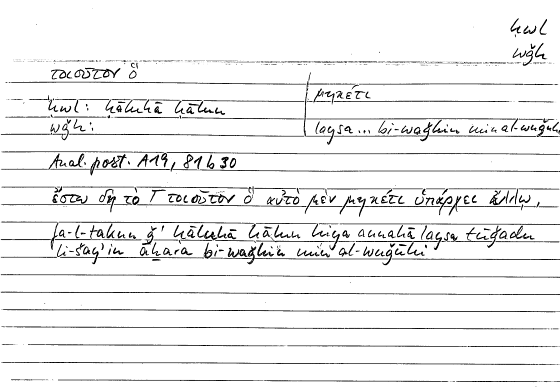 ḥwl
wǧh
τοιοῦτον ὅ
μηκέτι
ḥwl: ḥāluhā ḥālun
wǧh:
laysa... bi-waǧhin min al-wuǧūh
Anal. post. A19, 81 b 30
ἔστω δὴ τὸ Γ τοιοῦτον ὅ αὐτὸ μὲν μηκέτι ὑπάρχει ἄλλῳ,
fa-l-takun ǧ' ḥāluhā ḥālun hiya annahā laysa tūǧadu
li-šay'in āḫara bi-waǧhin min al-wuǧūhi